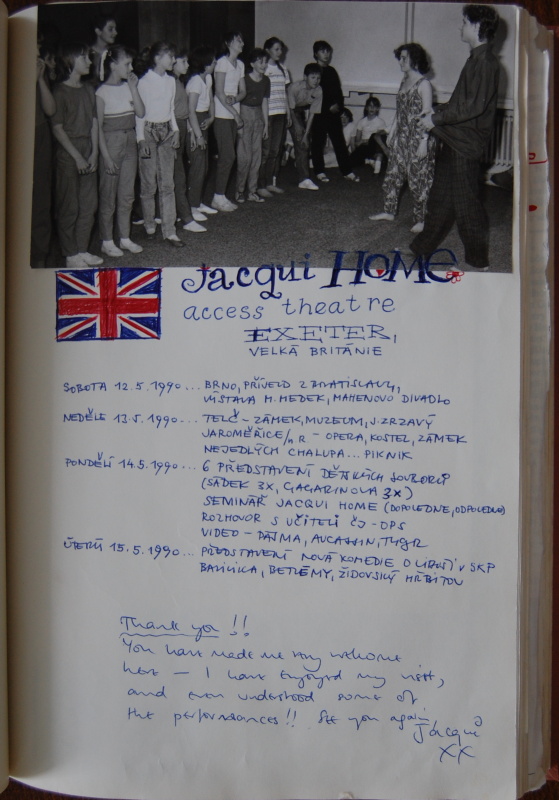 Jacqui HOME
access theatre
EXETER,
VELKÁ BRITÁNIE
SOBOTA 12.5.1990... BRNO, PŘÍVEZD Z BRATISLAVY,
VÝSTAVA M. MEDEK, MAHENOVO DIVADLO
NEDĚLE 13.5.1990... TELČ - ZÁMEK, MUZEUM, J. ZRZAVÝ
JAROMĚŘICE/n R - OPERA, KOSTEL, ZÁMEK
NEJEDLÝCH CHALUPA... PIKNIK
PONDĚLÍ 14.5.1990... 6 PŘEDSTAVENÍ DĚTSKÝCH SOUBORŮ
(SÁDEK 3X, GAGARINOVA 3X)
SEMINÁŘ JACQUI HOME (DOPOLEDNE, ODPOLEDNE)
ROZHOVOR S UČITELI ČJ - OPS
VIDEO - DÁJMA, AUCASSIN, TYGR
ÚTERÝ 15.5.1990... PŘEDSTAVENÍ NOVÁ KOMEDIE O LIBUŠI V SKP
BAZILIKA, BETLÉMY, ŽIDOVSKÝ HŘBITOV
Thank you!!
You have made me very welcome
here – I have enjoyed my visit,
and even understood some of
the performances!! See you again,
Jacqui
XX